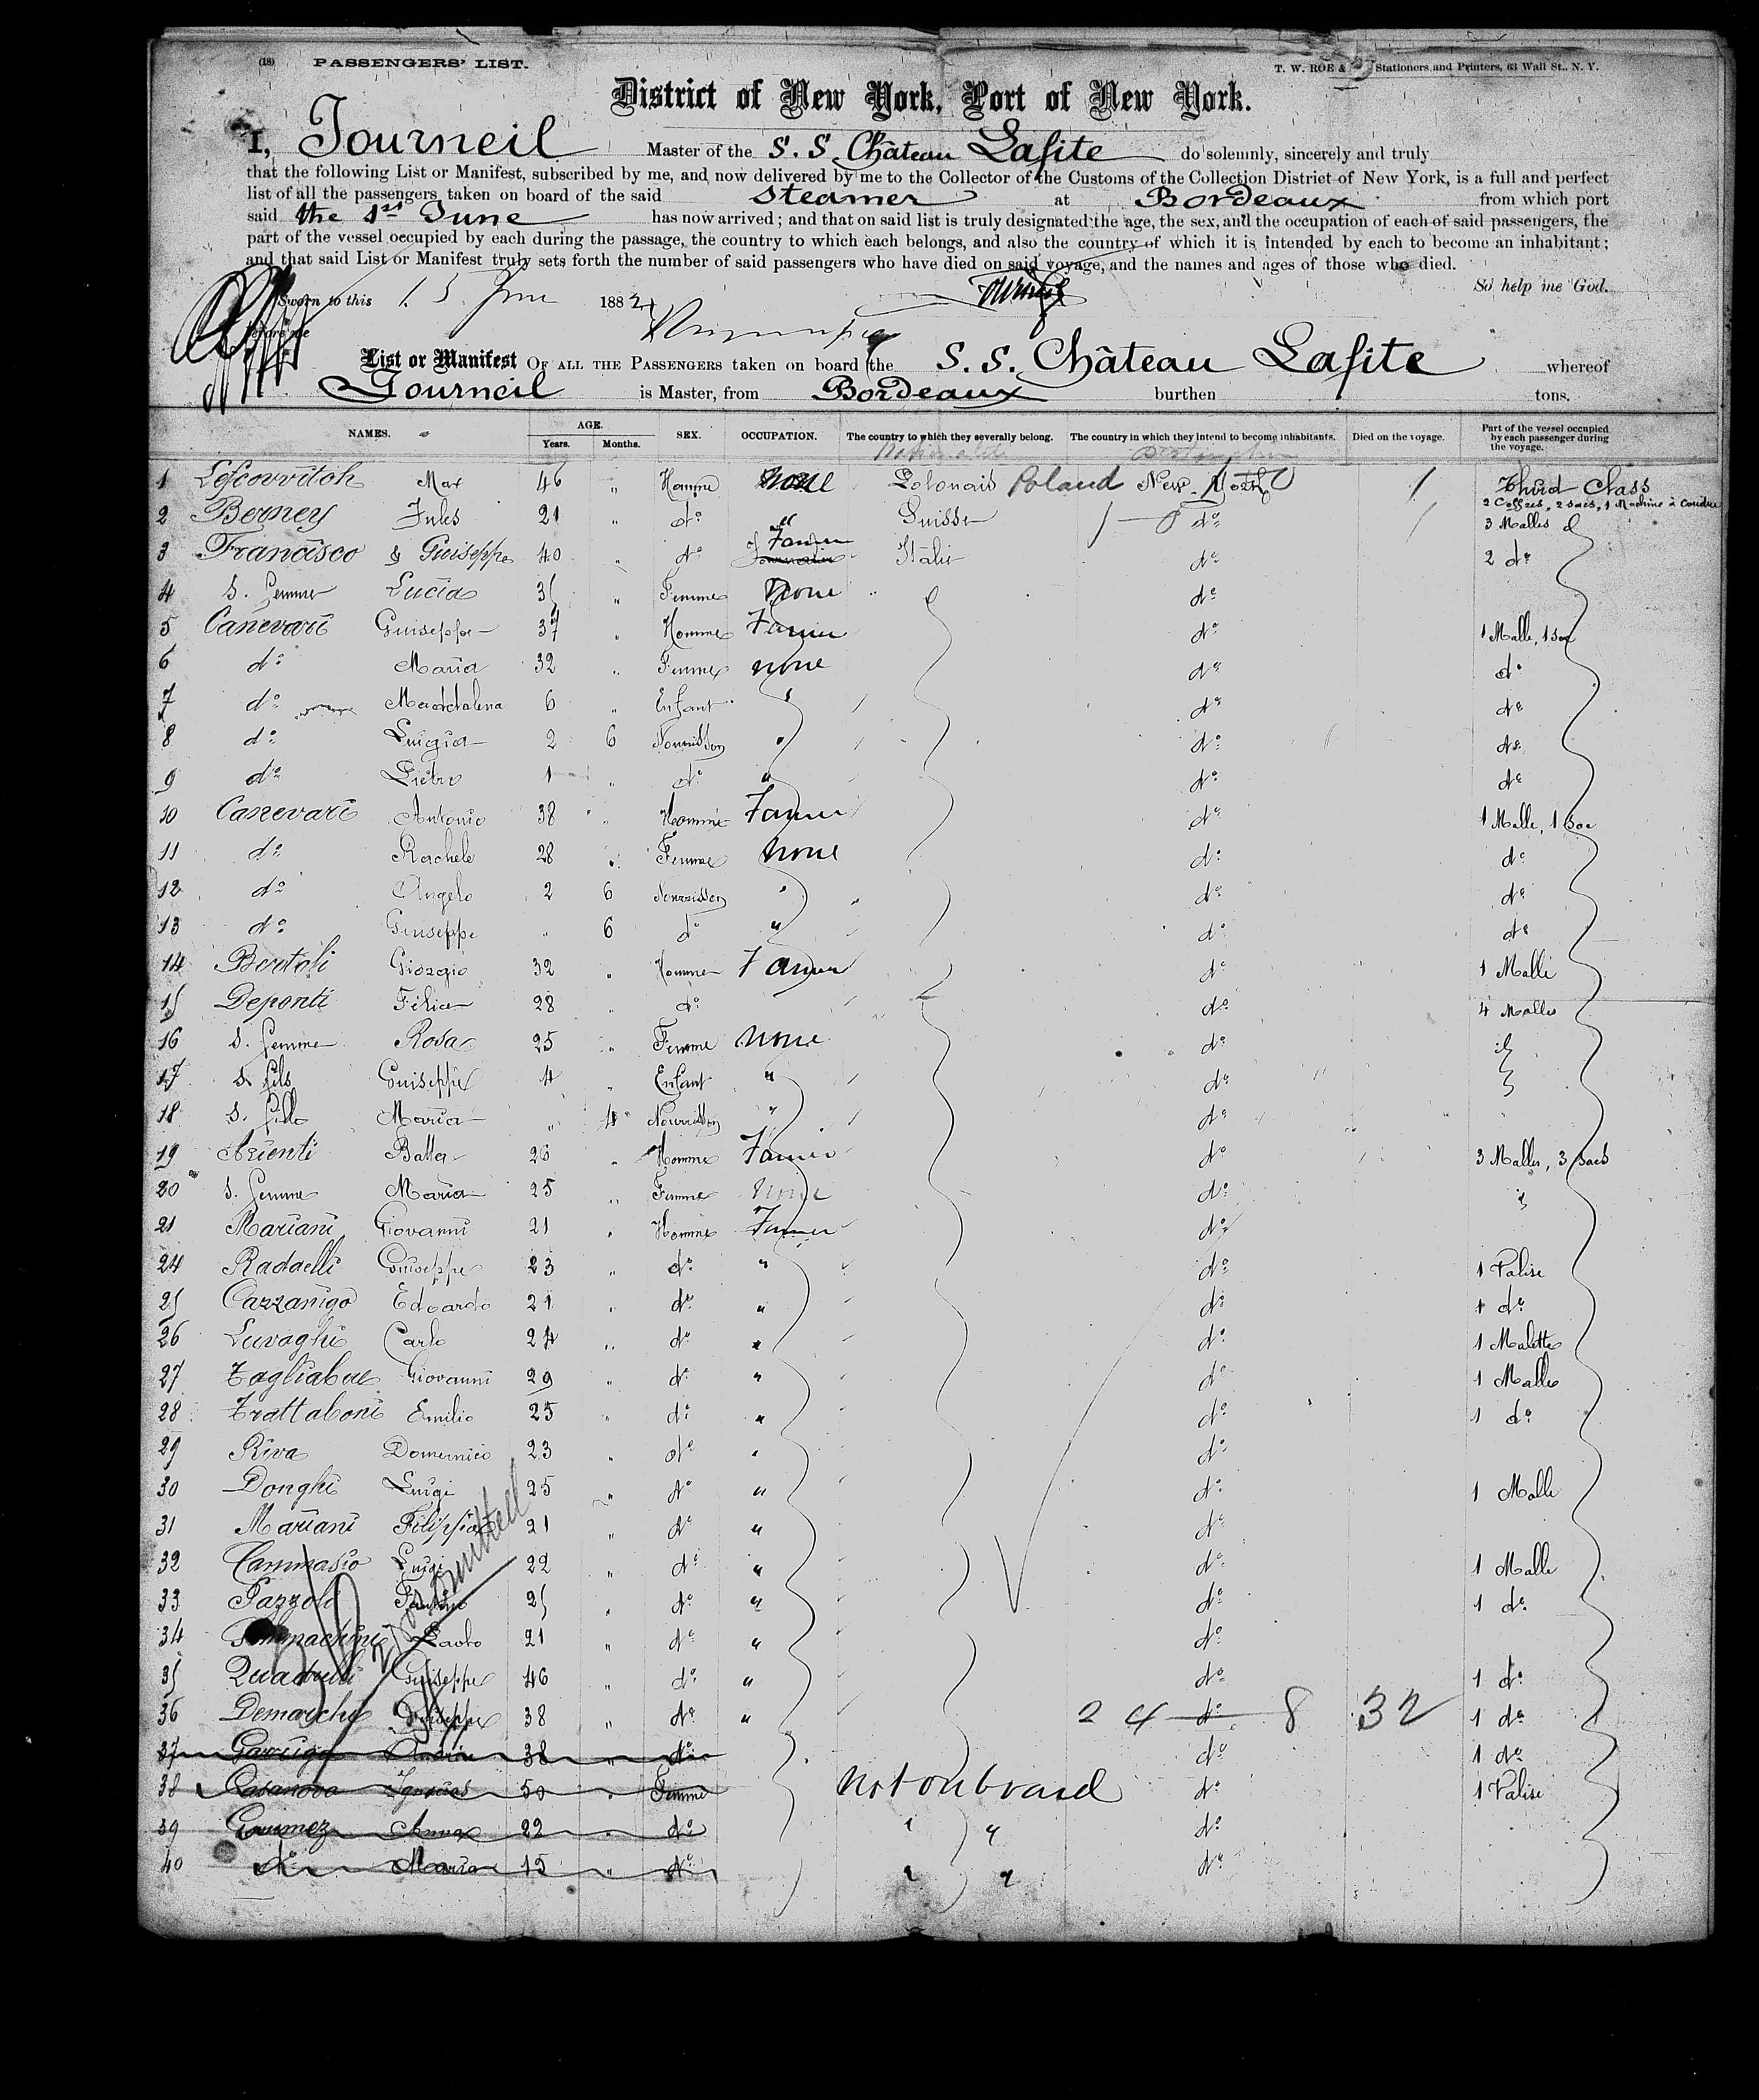 (18) PASSENGERS' LIST. T. W. ROE & Stationers and Printers, 63 Wall St., N. Y.
District of New York, Port of New York.
I, Tourneil Master of the S. S. Château Lafite do solemnly, sincerely and truly
that the following List or Manifest, subscribed by me, and now delivered by me to the Collector of the Customs of the Collection District of New York, is a full and perfect
list of all the passengers taken on board of the said Steamer at Bordeaux from which port
said the 1st June has now arrived; and that on said list is truly designated the age, the sex, and the occupation of each of said passengers, the
part of the vessel occupied by each during the passage, the country to which each belongs, and also the country of which it is intended by each to become an inhabitant;
and that said List or Manifest truly sets forth the number of said passengers who have died on said voyage, and the names and ages of those who died.
So help me God.
Sworn to this 15 June 1882
before me
List or Manifest OF ALL THE PASSENGERS taken on board the S. S. Château Lafite whereof
Tourneil is Master, from Bordeaux burthen tons.
NAMES. AGE. Years. Months. SEX. OCCUPATION. The country to which they severally belong. The country in which they intend to become inhabitants. Died on the voyage. Part of the vessel occupied by each passenger during the voyage.
1 Lefcovvitch Max 46 " Homme none Polonais Poland New-York Third Class
2 Coffres, 2 sacs, 1 Machine à Coudre
2 Berney Jules 21 " do " Suisse do 3 Malles
3 Francisco Guiseppe 40 " do Farmer Italie do 2 do
4 s. femme Lucia 35 " Femme None do
5 Canevari Guiseppe 37 " Homme Farmer do 1 Malle, 1 sac
6 do Maria 32 " Femme none do do
7 do Maddalena 6 " Enfant " do do
8 do Luigia 2 6 Nourisson " do do
9 do Pietro 1 " do " do do
10 Canevari Antonio 38 " Homme Farmer do 1 Malle, 1 sac
11 do Rachele 28 " Femme None do do
12 do Angelo 2 6 Nourisson " do do
13 do Guiseppe " 6 do " do do
14 Bertoli Giorgio 32 " Homme Farmer do 1 Malle
15 Deponti Félice 28 " do do 4 Malles
16 s. femme Rosa 25 " Femme None do
17 s. fils Guiseppe 4 " Enfant " do
18 s. fille Maria " 4 Nourisson " do
19 Arienti Batta 26 " Homme Farmer do 3 Malles, 3 sacs
20 s. femme Maria 25 " Femme None do
21 Mariani Giovanni 21 " Homme Farmer do
24 Radaelli Guiseppe 23 " do " do 1 Valise
25 Cazzanigo Edoardo 21 " do " do 1 do
26 Luvaghi Carlo 24 " do " do 1 Malette
27 Tagliabue Giovanni 29 " do " do 1 Malle
28 Trattaboni Emilio 25 " do " do 1 do
29 Riva Domenico 23 " do " do
30 Donghi Luigi 25 " do " do 1 Malle
31 Mariani Filippo 21 " do " do
32 Cammasio Luigi 22 " do " do 1 Malle
33 Pazzoli 25 " do " do 1 do
34 Paolo 21 " do " do
35 Quadrelli Guiseppe 46 " do " do 1 do
36 Demarchi Guiseppe 38 " do " 24 do 8 32 1 do
37 38 " do do 1 do
38 Casanova 50 " Femme Not on board do 1 Valise
39 Guimez Anna 22 " do " " do
40 do Maria 15 " do " " do